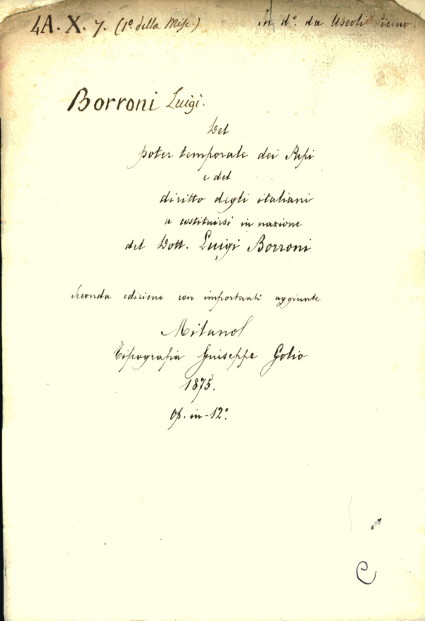 4A. X. 7. (1º della Misc.)
in dº. da Ascoli Piceno
Borroni Luigi.
Del
poter temporale dei Papi
e del
diritto degli italiani
a costituirsi in nazione
del Dott. Luigi Borroni
Seconda edizione con importanti aggiunte
Milano
Tipografia Giuseppe Golio
1875.
Op. in-12º
C